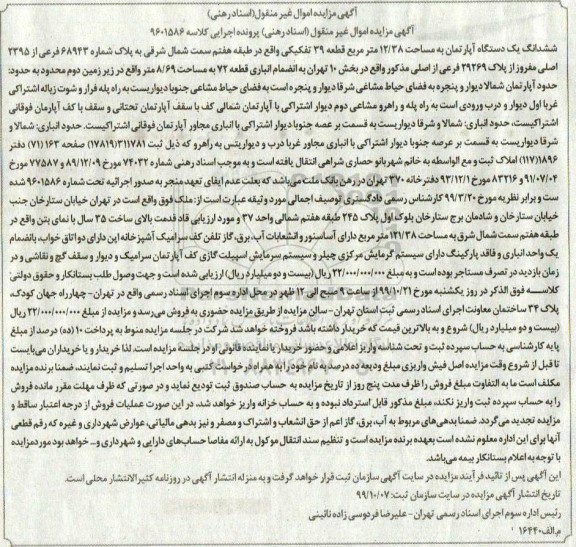 آگهی مزایده اموال غیر منقول(اسناد رهنی)
آگهی مزایده اموال غیر منقول (اسناد رهنی) پرونده اجرایی کلاسه ۹۶۰۱۵۸۶
ششدانگ یک دستگاه آپارتمان به مساحت ۱۲/۳۸ متر مربع قطعه ۳۹ تفکیکی واقع در طبقه هفتم سمت شمال شرقی به پلاک شماره ۶۸۹۴۳ فرعی از ۲۳۹۵
اصلی مفروز از پلاک ۲۹۲۶۹ فرعی از اصلی مذکور واقع در بخش ۱۰ تهران به انضمام انباری قطعه ۷۲ به مساحت ۸/۶۹ متر واقع در زیر زمین دوم محدود به حدود:
حدود آپارتمان شمالا دیوار و پنجره به فضای حیاط مشاعی شرقا دیوار و پنجره است به فضای حیاط مشاعی جنوبا دیواریست به راه پله فرار و شوت زباله اشتراکی
غربا اول دیوار و درب ورودی است به راه پله و راهرو مشاعی دوم دیوار اشتراکی با آپارتمان شمالی کف با سقف آپارتمان تحتانی و سقف با کف آپارمان فوقانی
اشتراکیست، حدود انباری: شمالا و شرقا دیواریست به قسمت بر عصه جنوبا دیوار اشتراکی با انباری مجاور آپارتمان فوقانی اشتراکیست. حدود انباری: شمالا و
شرقا دیواریست به قسمت بر عرصه جنوبا دیوار اشتراکی با انباری مجاور غربا درب و دیواریتس به راهرو که ذیل ثبت ۳۱۱۷۸۱(۱۷۸۱۹) صفحه ۱۶۳ (۷۱) دفتر
۱۸۹۶(۱۱۷) املاک ثبت و مع الواسطه به خانم شهربانو حصاری شراهی انتقال یافته است و به موجب اسناد رهنی شماره ۷۴۰۳۲ مورخ ۸۹/۱۲/۰۹ و ۷۷۵۸۷ مورخ
۹۱/۰۷/۰۴ و ۸۳۲۱۶ مورخ ۹۳/۱۲/۱ دفترخانه ۳۷۰ تهران در رهن بانک ملت می‌باشد که بعلت عدم ایفای تعهد منجر به صدور اجرائیه تحت شماره ۹۶۰۱۵۸۶ شده
ست و برابر نظریه مورخ ۹۹/۳/۲۰ کارشناس رسمی دادگستری توصیف اجمالی مورد وثیقه عبارت است از: ملک فوق واقع است در تهران خیابان ستارخان جنب
خیابان ستارخان و شادمان برج ستارخان بلوک اول پلاک ۲۴۵ طبقه هفتم شمالی واحد ۳۷ و مورد ارزیابی قاد قدمت بالای ساخت ۳۵ سال با نمای بتن واقع در
طبقه هفتم سمت شمال شرق به مساحت ۱۲۱/۳۸ متر مربع دارای آسانسور و انشعابات آب، برق، گاز تلفن کف سرامیک آشپزخانه اپن دارای دو اتاق خواب، بانضمام
یک واحد انباری و فاقد پارکینگ دارای سیستم گرمایش مرکزی چیلر و سیستم سرمایش اسپیلت گازی کف آپارتمان سرامیک و دیوار و سقف گچ و نقاشی و در
زمان بازدید در تصرف مستاجر بوده است و به مبلغ ۲۲/۰۰۰/۰۰۰/۰۰۰ ریال (بیست و دو میلیارد ریال) ارزیابی شده است و جهت وصول طلب بستانکار و حقوق دولتی
کلاسه فوق الذکر در روز یکشنبه مورخ ۱۳۹۹/۱۰/۲۱ از ساعت ۹ صبح الی ۱۲ ظهر در محل اداره سوم اجرای اسناد رسمی واقع در تهران- چهارراه جهان کودک،
پلاک ۳۴ ساختمان معاونت اجرای اسناد رسمی ثبت استان تهران- سالن مزایده از طریق مزایده حضوری به فروش می‌رسد و مزایده از مبلغ ۲۲/۰۰۰/۰۰۰/۰۰۰ ریال
(بیست و دو میلیارد ریال) شروع و به بالاترین قیمت که خریدار داشته باشد فروخته خواهد شد شرکت در جلسه مزایده منوط به پرداخت ۱۰ (ده) درصد از مبلغ
پایه کارشناسی به حساب سپرده ثبت و تحت شناسه واریز اعلامی و حضور خریدار یا نماینده قانونی او در جلسه مزایده است. لذا خریدار و یا خریداران می‌بایست
تا قبل از شروع وقت مزایده اصل فیش واریزی مبلغ ودیعه ده درصد به نام خود را به همراه درخواست کتبی به واحد اجرا تسلیم و ثبت نمایند، ضمنا برنده مزایده
مکلف است ما به التفاوت مبلغ فروش را ظرف مدت پنج روز از تاریخ مزایده به حساب صندوق ثبت تودیع نماید و در صورتی که ظرف مهلت مقرر مانده فروش
را به حساب سپرده ثبت واریز نکند، مبلغ مذکور قابل استرداد نبوده و به حساب خزانه واریز خواهد شد، در این صورت عملیات فروش از درجه اعتبار ساقط و
مزایده تجدید می‌گردد. ضمنا بدهی‌های مربوط به آب، برق، گاز اعم از حق انشعاب و اشتراک و مصرف و نیز بدهی مالیاتی، عوارض شهرداری و غیره که رقم قطعی
آنها برای این اداره معلوم نشده است بعهده برنده مزایده است و تنظیم سند انتقال موکول به ارائه مفاصا حساب‌های دارایی و شهرداری و... خواهد بود مورد مزایده
با توجه به اعلام بستانکار بیمه می‌باشد.
این آگهی پس از تائید فرآیند مزایده در سایت آگهی سازمان ثبت قرار خواهد گرفت و به منزله انتشار آگهی در روزنامه کثیر الانتشار محلی است.
تاریخ انتشار آگهی مزایده در سایت سازمان ثبت: ۹۹/۱۰/۰۷
رئیس اداره سوم اجرای اسناد رسمی تهران- علیرضا فردوسی زاده نائینی
م.الف-۱۶۴۴۰